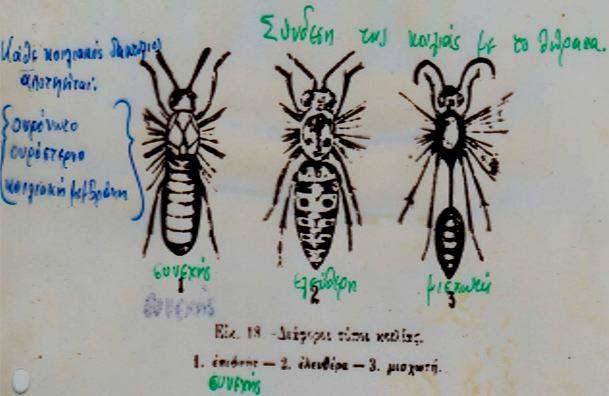 Σύνδεση της κοιλιάς με το θώρακα.
Κάθε κοιλιακός δακτύλιος
αποτελείται:
ουρόνωτο
ουρόστερνο
κοιλιακή μεμβράνη
συνεχής
ελεύθερη
μισχωτή
1
2
3
συνεχής
Εἰκ. 18 -Διάφοροι τύποι κοιλίας.
1. ἐπιφυής — 2. ἐλευθέρα — 3. μισχωτή.
συνεχής